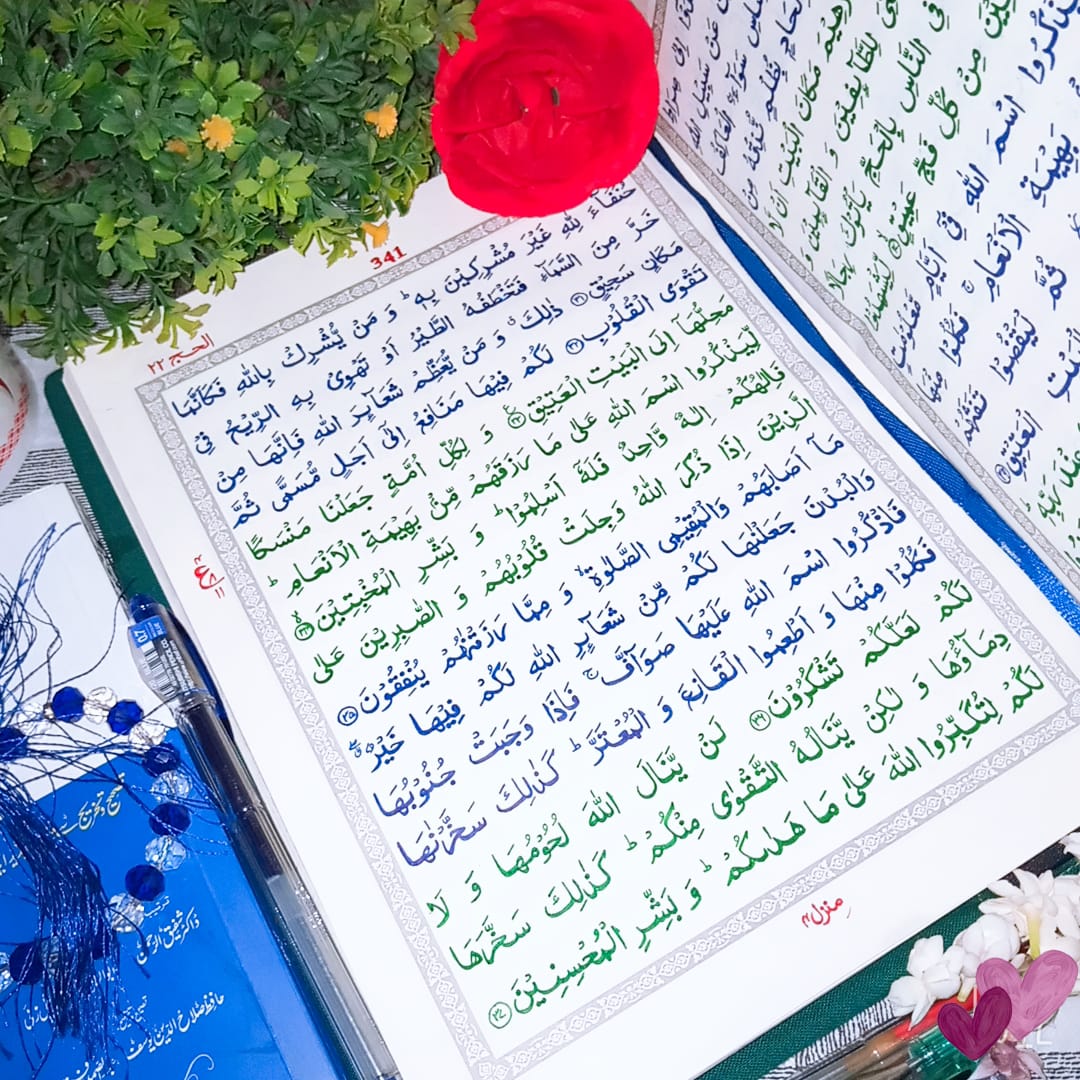 341
الحج ٢٢
حُنَفَآءَ لِلّٰهِ غَيْرَ مُشْرِكِيْنَ بِهٖ ؕ وَ مَنْ يُّشْرِكْ بِاللّٰهِ فَكَاَنَّمَا
خَرَّ مِنَ السَّمَآءِ فَتَخْطَفُهُ الطَّيْرُ اَوْ تَهْوِيْ بِهِ الرِّيْحُ فِيْ
مَكَانٍ سَحِيْقٍ ۳۱ ذٰلِكَ ۗ وَ مَنْ يُّعَظِّمْ شَعَآىِٕرَ اللّٰهِ فَاِنَّهَا مِنْ
تَقْوَى الْقُلُوْبِ ۳۲ لَكُمْ فِيْهَا مَنَافِعُ اِلٰۤى اَجَلٍ مُّسَمًّى ثُمَّ
مَحِلُّهَاۤ اِلَى الْبَيْتِ الْعَتِيْقِ ۳۳ وَ لِكُلِّ اُمَّةٍ جَعَلْنَا مَنْسَكًا
لِّيَذْكُرُوا اسْمَ اللّٰهِ عَلٰى مَا رَزَقَهُمْ مِّنْۢ بَهِيْمَةِ الْاَنْعَامِ ؕ
فَاِلٰهُكُمْ اِلٰهٌ وَّاحِدٌ فَلَهٗۤ اَسْلِمُوْا ؕ وَ بَشِّرِ الْمُخْبِتِيْنَ ۳۴
الَّذِيْنَ اِذَا ذُكِرَ اللّٰهُ وَجِلَتْ قُلُوْبُهُمْ وَ الصّٰبِرِيْنَ عَلٰى
مَاۤ اَصَابَهُمْ وَالْمُقِيْمِي الصَّلٰوةِ ۙ وَ مِمَّا رَزَقْنٰهُمْ يُنْفِقُوْنَ ۳۵
وَالْبُدْنَ جَعَلْنٰهَا لَكُمْ مِّنْ شَعَآىِٕرِ اللّٰهِ لَكُمْ فِيْهَا خَيْرٌ ۖ
فَاذْكُرُوا اسْمَ اللّٰهِ عَلَيْهَا صَوَآفَّ ۚ فَاِذَا وَجَبَتْ جُنُوْبُهَا
فَكُلُوْا مِنْهَا وَ اَطْعِمُوا الْقَانِعَ وَ الْمُعْتَرَّ ؕ كَذٰلِكَ سَخَّرْنٰهَا
لَكُمْ لَعَلَّكُمْ تَشْكُرُوْنَ ۳۶ لَنْ يَّنَالَ اللّٰهَ لُحُوْمُهَا وَ لَا
دِمَآؤُهَا وَ لٰكِنْ يَّنَالُهُ التَّقْوٰى مِنْكُمْ ؕ كَذٰلِكَ سَخَّرَهَا
لَكُمْ لِتُكَبِّرُوا اللّٰهَ عَلٰى مَا هَدٰىكُمْ ؕ وَ بَشِّرِ الْمُحْسِنِيْنَ ۳۷
منزل ۴
ع
۱۱
عَنْ سَبِيْلِ اللّٰهِ
مَكَانَ الْبَيْتِ اَنْ لَّا
لِلطَّآىِٕفِيْنَ وَ الْقَآىِٕمِيْنَ وَ
فِي النَّاسِ بِالْحَجِّ يَاْتُوْكَ رِجَالًا
مِنْ كُلِّ فَجٍّ عَمِيْقٍ
اسْمَ اللّٰهِ فِيْۤ اَيَّامٍ مَّعْلُوْمٰتٍ
بَهِيْمَةِ الْاَنْعَامِ ۚ فَكُلُوْا مِنْهَا
ثُمَّ لْيَقْضُوْا تَفَثَهُمْ
الْعَتِيْقِ
ڈاکٹر شفیق الرحمٰن
حافظ صلاح الدین یوسف